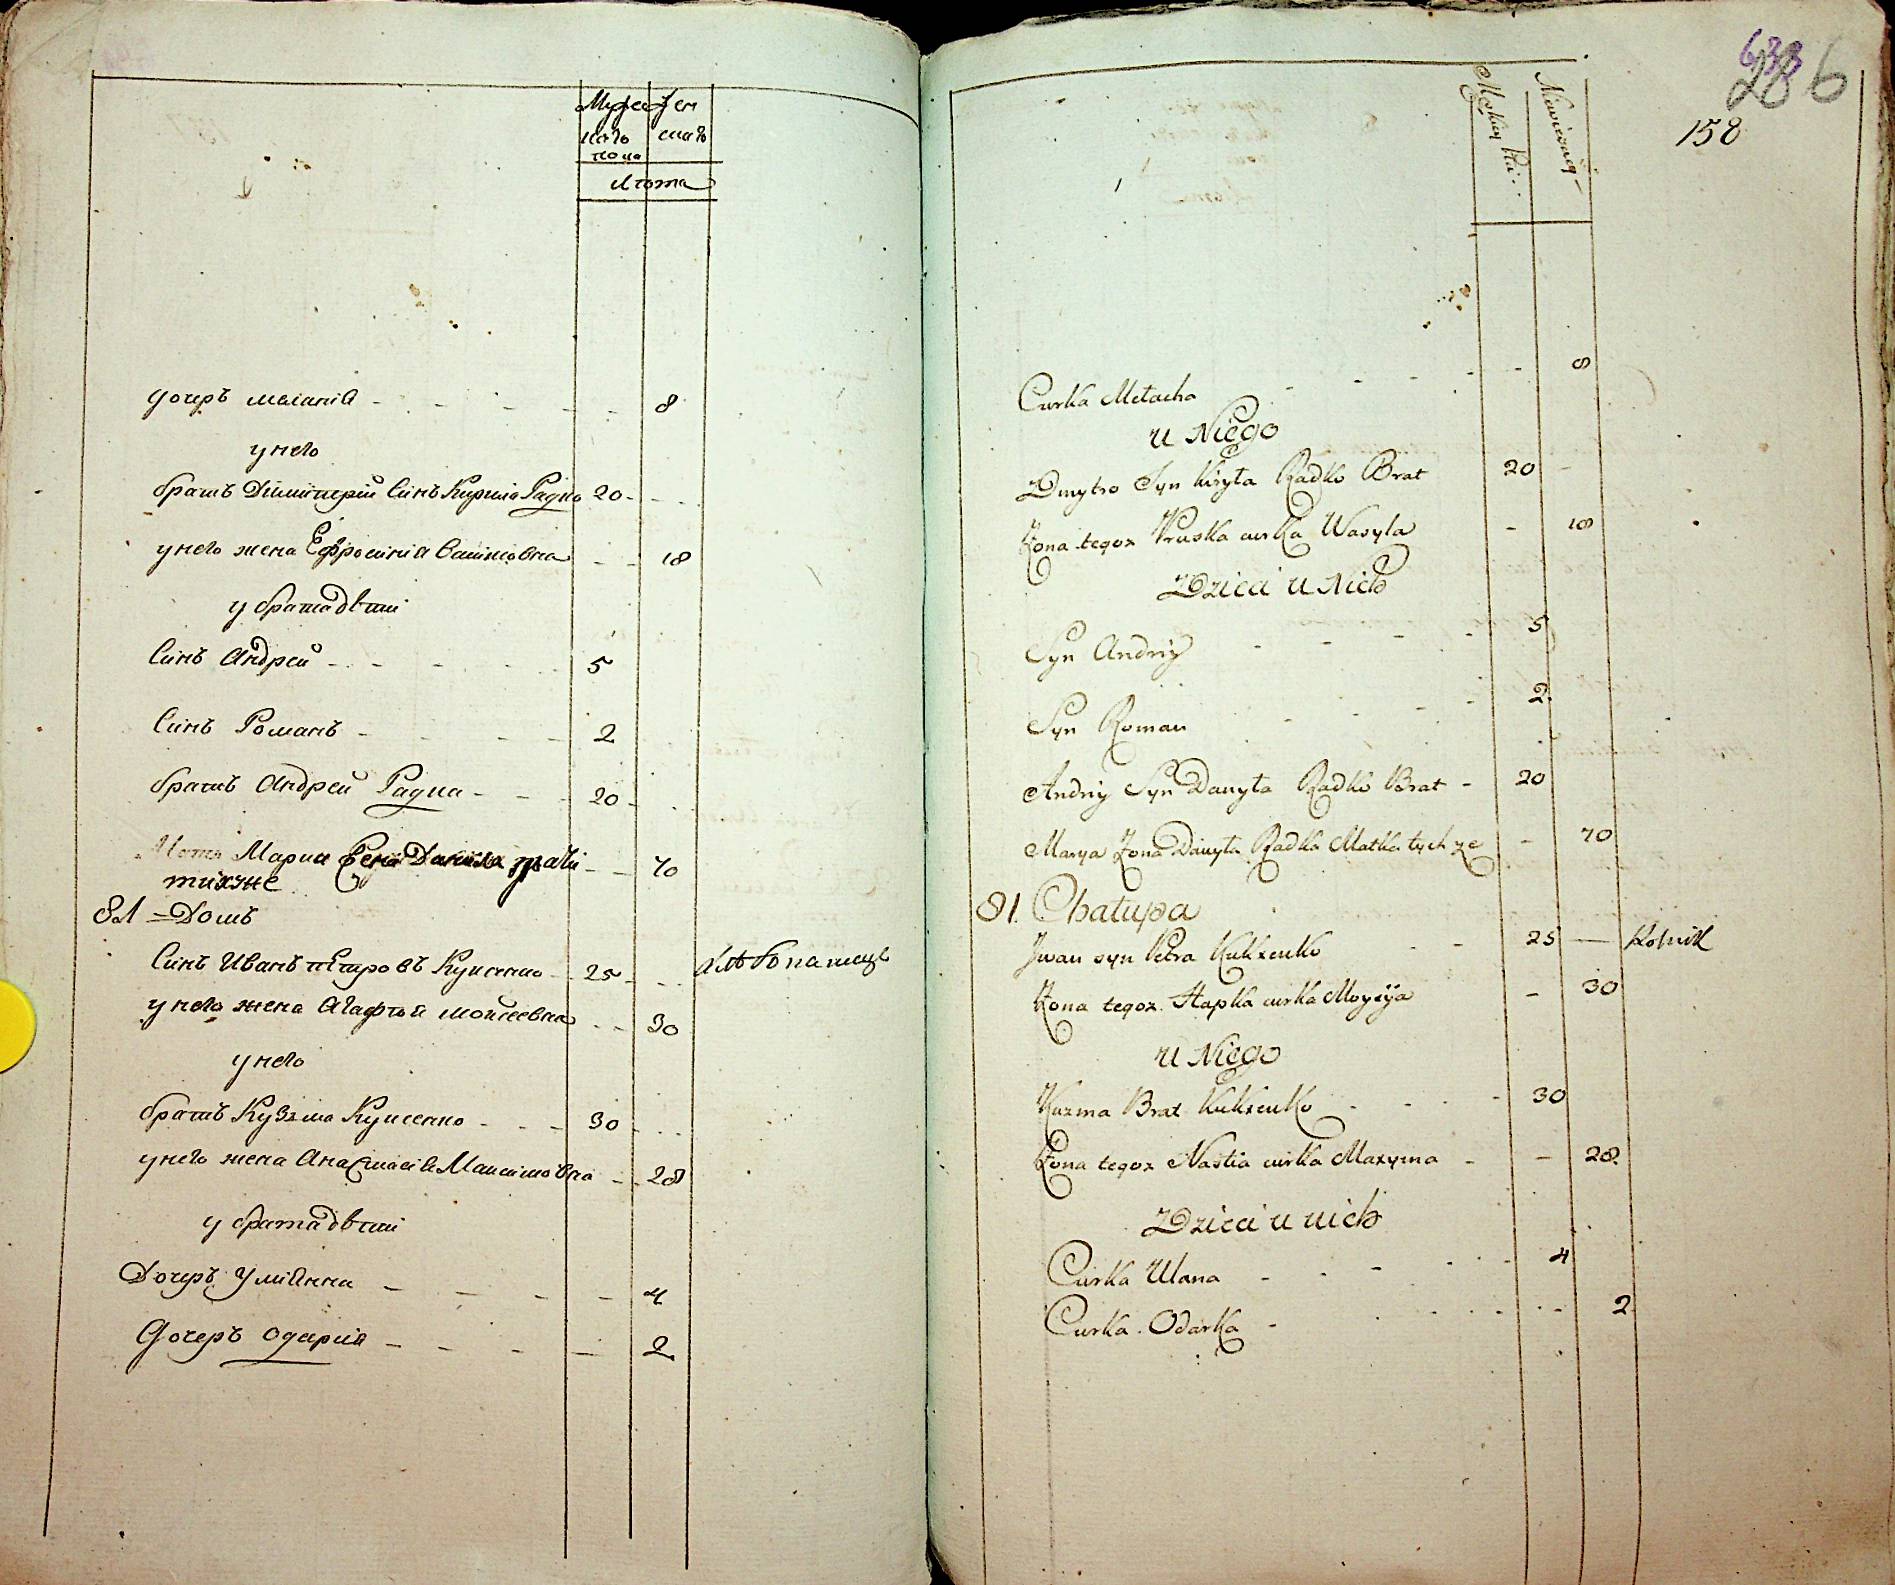 Мужеска Жен
каго скаго
пола
лѣта
дочеръ меланія - - - - - 8
у него
братъ Димитерій Синъ Кирила Радко 20 - - -
у него жена Ефросинія Василювна - - 18
у брата дѣти
Синъ Андрей - - - - - 5
Синъ Романъ - - - - - 2
братъ Андрей Радка - - - 20 - - -
Мать Мария Жена Данила - - 70
тихже
81 = Домъ
Синъ Иванъ пЕтровъ Куксенко - 25 - - - хлѣбопашецъ
у него жена Агафтія моисеевна - - 30
у него
братъ Кузма Куксенко - - - 30 - - -
у него жена Анастасія Максимовна - - 28
у брата дѣти
Дочеръ Улиянна - - - - 4
Дочеръ Одария - - - - 2
633
286
158
Curka Mełacha - - - - - 8
u Niego
Dmytro Syn Kiryła Radko Brat 20 -
Żona tegoż Pruska curka Wasyla - 18
Dzieci u Nich
Syn Andriy - - - - 5
Syn Roman - - - - 2.
Andriy Syn Danyła Radko Brat - 20
Marya Żona Danyła Radka Matka tych że - 70
81. Chałupa
Jwan syn Petra Kuksenko - - 25 — Rolnik
Żona tegoż Hapka curka Moysija - 30
u Niego
Kuzma Brat Kuksenko - - - - 30
Żona tegoż Nastia curka Maxyma - - 28.
Dzieci u nich
Curka Ulana - - - - - 4
Curka Odarka - - - - - - 2